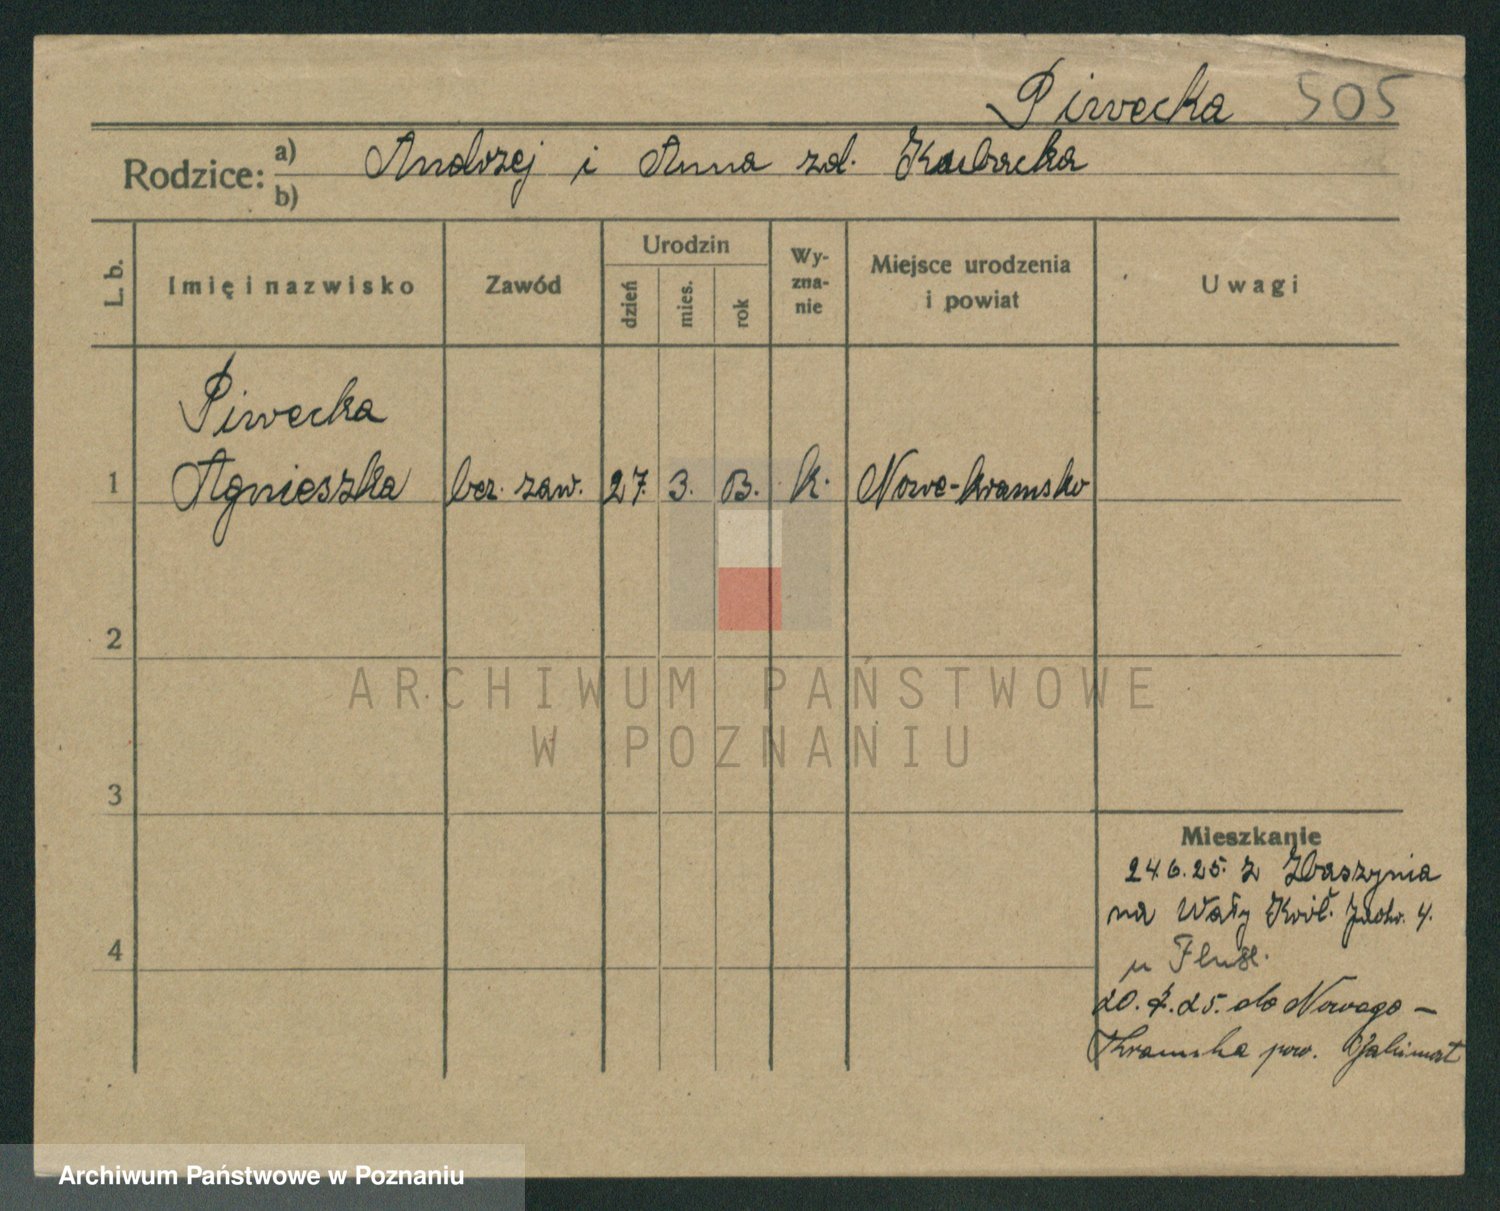 Piwecka 505
Rodzice: a) b) Andrzej i Anna zd. Kubacka
L. b.
Imię i nazwisko
Zawód
Urodzin
dzień
mies.
rok
Wy-
zna-
nie
Miejsce urodzenia
i powiat
Uwagi
Piwecka
1 Agnieszka bez zaw. 27. 3. 03. k. Nowe-Kramsko
2
3
4
Mieszkanie
24.6.25. z Zbaszynia
na Wały Król. Jadw. 4.
u
20.7.25. do Nowego -
Kramska pow. Babimost
ARCHIWUM PAŃSTWOWE
W POZNANIU
Archiwum Państwowe w Poznaniu